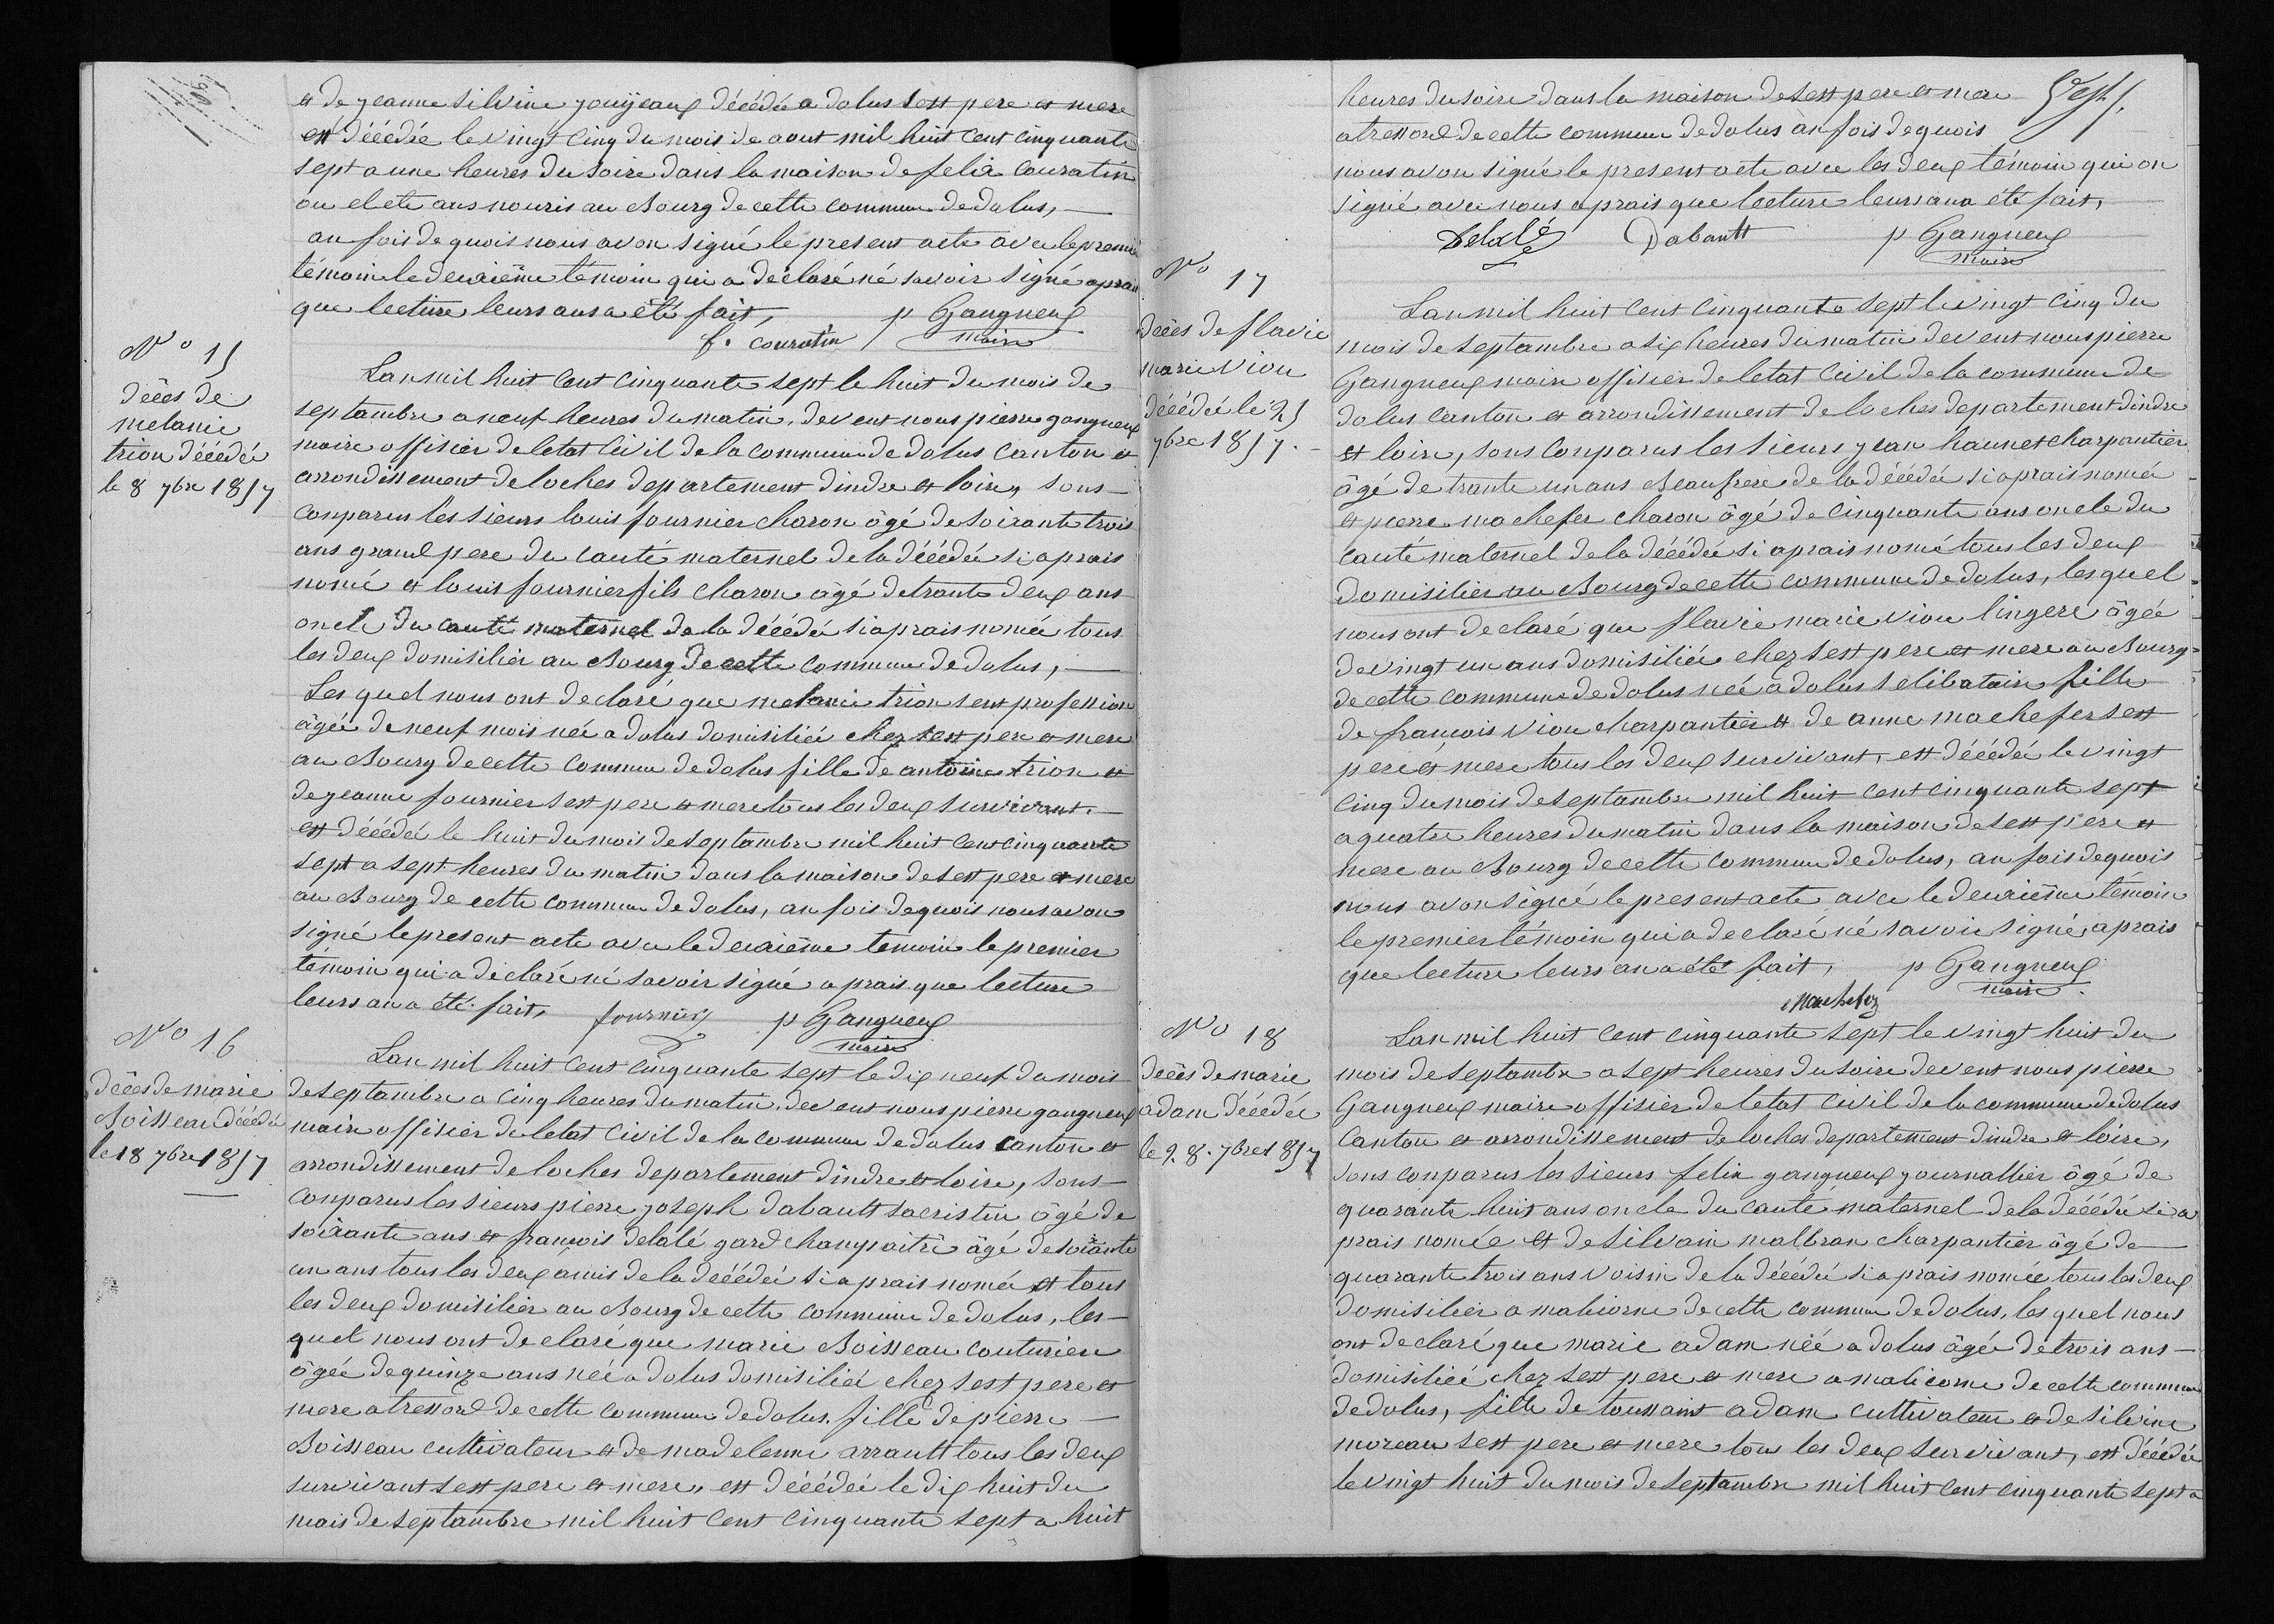 a de yeanne silvine youijeaux décédée a dolus sest pere et mere
est décédée le vingt cinq du mois de aout mil huit cent cinquante
sept a une heures du soire dans la maison de felix couratin
ou elete ans nouris au Bourg de cette commune de dolus,
an fois de quois nous avon signé le present acte avec le premié
témoin le deuxiême témoin qui a déclaré né savoir signé aprai
que lecture leurs ansa été fait, p Gangneux
f. couratin maire
N° 15
décès de
melanie
trion décédée
le 8 7bre 1857
Lan mil huit cent cinquante sept le huit du mois de
septambre a neuf heures du matin, devent nous pierre gangneux
maire offisier de letat Civil de la commune de dolus canton et
arrondissement de loches departement dindre et loire, sons
conparus les sieurs louis fournier charon âgé de soixante trois
ans grand pere du cauté maternel de la décédée si aprais
nomé et louis fournier fils charon âgé de trante deux ans
oncle du cauté maternel de la décédée si aprais nomée tous
les deux domisilier au Bourg de cette commune de dolus,
Les quel nous ont declaré que melanie trion sent profession
âgée de neuf mois née a dolus domisiliée chez sest pere et mere
au Bourg de cette commune de dolus fille de antoine trion et
de yeanne fournier sest pere et mere tous les deux survivant,
est décédée le huit du mois de septambre mil huit cent cinquante
sept a sept heures du matin dans la maison de sest pere et mere
au Bourg de cette commune de dolus, an fois de quois nous avon
signé le present acte avec le deuxiême temoin le premier
témoin qui a déclaré né savoir signé aprais que lecture
leurs an a été fait, fournier p Gangneux
maire
N° 16
décès de marie
Boisseau décédée
le 18 7bre 1857
Lan mil huit cent cinquante sept le dix neuf du mois
de septambre a cinq heures du matin, devent nous pierre gangneux
maire offisier de letat civil de la commune de dolus canton et
arrondissement de loches departement dindre et loire, sons
conparus les sieurs pierre joseph dabault sacristin âgé de
soixante ans et françois delalé gard chanpaitre âgé de soixante
un ans tous les deux amis de la décédée si aprais nomée et tous
les deux domisilier au Bourg de cette commune de dolus, les
quel nous ont declaré que marie Boisseau couturiere
âgée de quinze ans née a dolus domisiliée chez sest pere et
mere a tressord de cette commune de dolus, fille de pierre
Boisseau cultivateur et de madelenne arrault tous les deux
survivant sest pere et mere, est décédée le dix huit du
mois de septambre mil huit cent cinquante sept a huit
heures du soire dans la maison de sest pere et mere
a tressord de cette commune de dolus an fois de quois
nous avon signé le present acte avec les deux témoin qui on
signé avec nous aprais que lecture leurs an a été fait,
Delalé Dabault p Gangneux
maire
N° 17
décès de flavie
marie Viou
décédée le 25
7bre 1857.
Lan mil huit cent cinquante sept le vingt cinq du
mois de septambre a six heures du matin devent nous pierre
Gangneux maire offisier de letat Civil de la commune de
dolus canton et arrondissement de loches departement dindre
et loire, sons conparus les sieurs yean haunet charpantier
âgé de trante un ans Beaufrere de la décédée si aprais nomée
et pierre machefer charon âgé de cinquante ans oncle du
cauté maternel de la décédée si aprais nomé tous les deux
domisilier au Bourg de cette commune de dolus, les quel
nous ont declaré que flavie marie viou lingere âgée
de vingt un ans domisiliée chez sest pere et mere au Bourg
de cette commune de dolus née a dolus selibataire fille
de françois viou charpantier et de anne machefer sest
pere et mere tous les deux survivant, est décédée le vingt
cinq du mois de septambre mil huit cent cinquante sept
a quatre heures du matin dans la maison de sest pere et
mere au Bourg de cette commune de dolus, an fois de quois
nous avon signé le present acte avec le deuxiême témoin
le premier témoin qui a declaré né savoir signé, aprais
que lecture leurs an a été fait, p Gangneux
machefer maire
N° 18
décès de marie
adam décédée
le 28. 7bre 1857
Lan mil huit cent cinquante sept le vingt huit du
mois de septambre a sept heures du soire devent nous pierre
Gangneux maire offisier de letat civil de la commune de dolus
Canton et arrondissement de loches departement dindre et loire,
sons conparus les sieurs felix gangneux journallier âgé de
quarante huit ans oncle du cauté maternel de la décédée si a
prais nomée et de silvain malbran charpantier âgé de
quarante trois ans voisin de la décédée si aprais nomée tous les deux
domisilier a malicorne de cette commune de dolus, les quel nous
ont declaré que marie adam née a dolus âgée de trois ans
domisiliée chez sest pere et mere a malicorne de cette commune
de dolus, fille de toussaint adam cultivateur et de silvine
moreau sest pere et mere tous les deux survivant, est décédée
le vingt huit du mois de septambre mil huit cent cinquante sept a